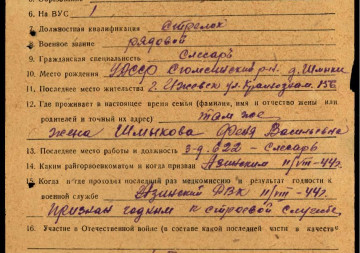 6. На ВУС 1
7. Должностная квалификация стрелок
8. Военное звание рядовой
9. Гражданская специальность Слесарь
10. Место рождения УАССР р-н. д.
11. Последнее место жительства г. Ижевск ул. 156
12. Где проживает в настоящее время семья (фамилия, имя и отчество жены или
родителей и точный их адрес) там же
жена Шмыкова Васильевна
13. Последнее место работы и должность 3-д. 622 - слесарь
14. Каким райгорвоенкоматом и когда призван Азинским 11/VIII-44г.
15. Когда и где проходил последний раз медкомиссию и результат годности к
военной службе Азинский РВК 11/VIII-44г.
признан годным к строевой службе
16. Участие в Отечественной войне (в составе какой последней части в качестве